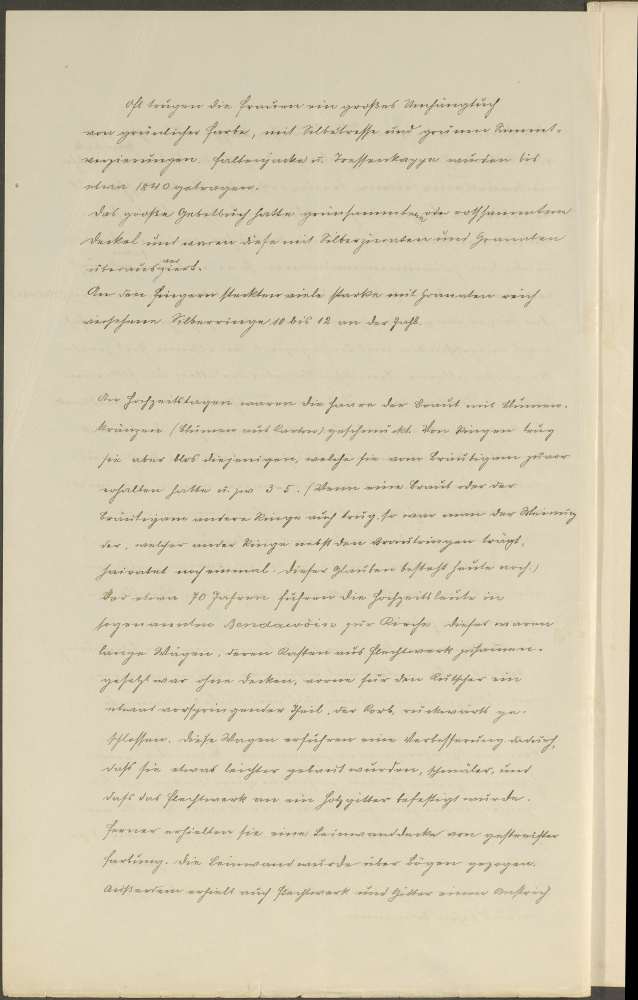 Oft trugen die Frauen ein großes Umhängtuch
von grünlicher Farbe, mit Silbertresse und grünen Sammet-
verzierungen. Faltenjacke u. Tressenkappe wurden bis
etwa 1840 getragen.
Das große Gebetbuch hatte grünsammtne oder rothsammtene
Deckel und waren diese mit Silberzieraten und Granaten
überaus verziert.
An den Fingern steckten viele starke mit Granaten reich
versehene Silberringe, 10 bis 12 an der Zahl.
An Hochzeitstagen waren die Haare der Braut mit Blumen-
kränzen (Blumen aus Karton) geschmückt. Von Ringen trug
sie aber blos diejenigen, welche sie vom Bräutigam zuvor
erhalten hatte u. zw. 3-5. (Wenn eine Braut oder der
Bräutigam andere Ringe auch trug, so war man der Meinung
der, welcher ander Ringe nebst den Brautringen trägt,
heiratet noch einmal. Dieser Glauben besteht heute noch.)
Vor etwa 70 Jahren fuhren die Hochzeitsleute in
sogenannten zur Kirche. Dieses waren
lange Wägen, deren Kasten aus Flechtwerk zusammen-
gesetzt war ohne Decken, vorne für den Kutscher ein
etwas vorspringender Theil, der Korb, rückwärts ge-
schlossen. Diese Wagen erfuhren eine Verbesserung dadurch,
daß sie etwas leichter gebaut wurden, schmäler, und
daß das Flechtwerk an ein Holzgitter befestigt wurde.
Ferner erhielten sie eine Leinwanddecke von gestreifter
Färbung. Die Leinwand wurde über Bögen gezogen.
Außerdem erhielt auch Flechtwerk und Gitter einen Anstrich